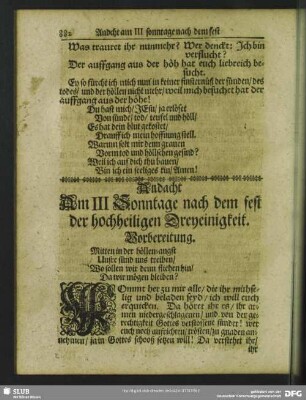 882 Andcht am III sonntage nach dem fest
Was trauret ihr nunmehr? Wer denckt: Ich bin
verflucht?
Der auffgang aus der höh hat euch liebreich be-
sucht.
Ey so fürcht ich mich nun in keiner finsternüß der sünden/ des
todes/ und der höllen nicht mehr/ weil mich besuchet hat der
auffgang aus der höhe!
Du hast mich/ JEsu/ ja erlöset
Von sünde/ tod/ teufel und höll/
Es hat dein blut gekostet/
Drauff ich mein hoffnung stell.
Warum solt mir denn grauen
Vorm tod und höllschen gesind?
Weil ich auf dich thu bauen/
Bin ich ein seeliges kin/ Amen!
Andacht
Am III Sonntage nach dem fest
der hochheiligen Dreyeinigkeit.
Vorbereitung.
Mitten in der höllen-angst
Unsre sünd uns treiben/
Wo sollen wir denn fliehen hin/
Da wir mögen bleiben?
KOmmt her zu mir alle/ die ihr mühse-
lig und beladen seyd/ ich will euch
erquicken. Da höret ihr es/ ihr ar-
men niedergeschlagenen/ und von der ge-
rechtigkeit Gottes verstossene sünder! wer
euch noch aufrichten/ trösten/ zu gnaden an-
nehmen/ ja in Gottes schooß setzen will! Da verstehet ihr/
ihr
SLUB